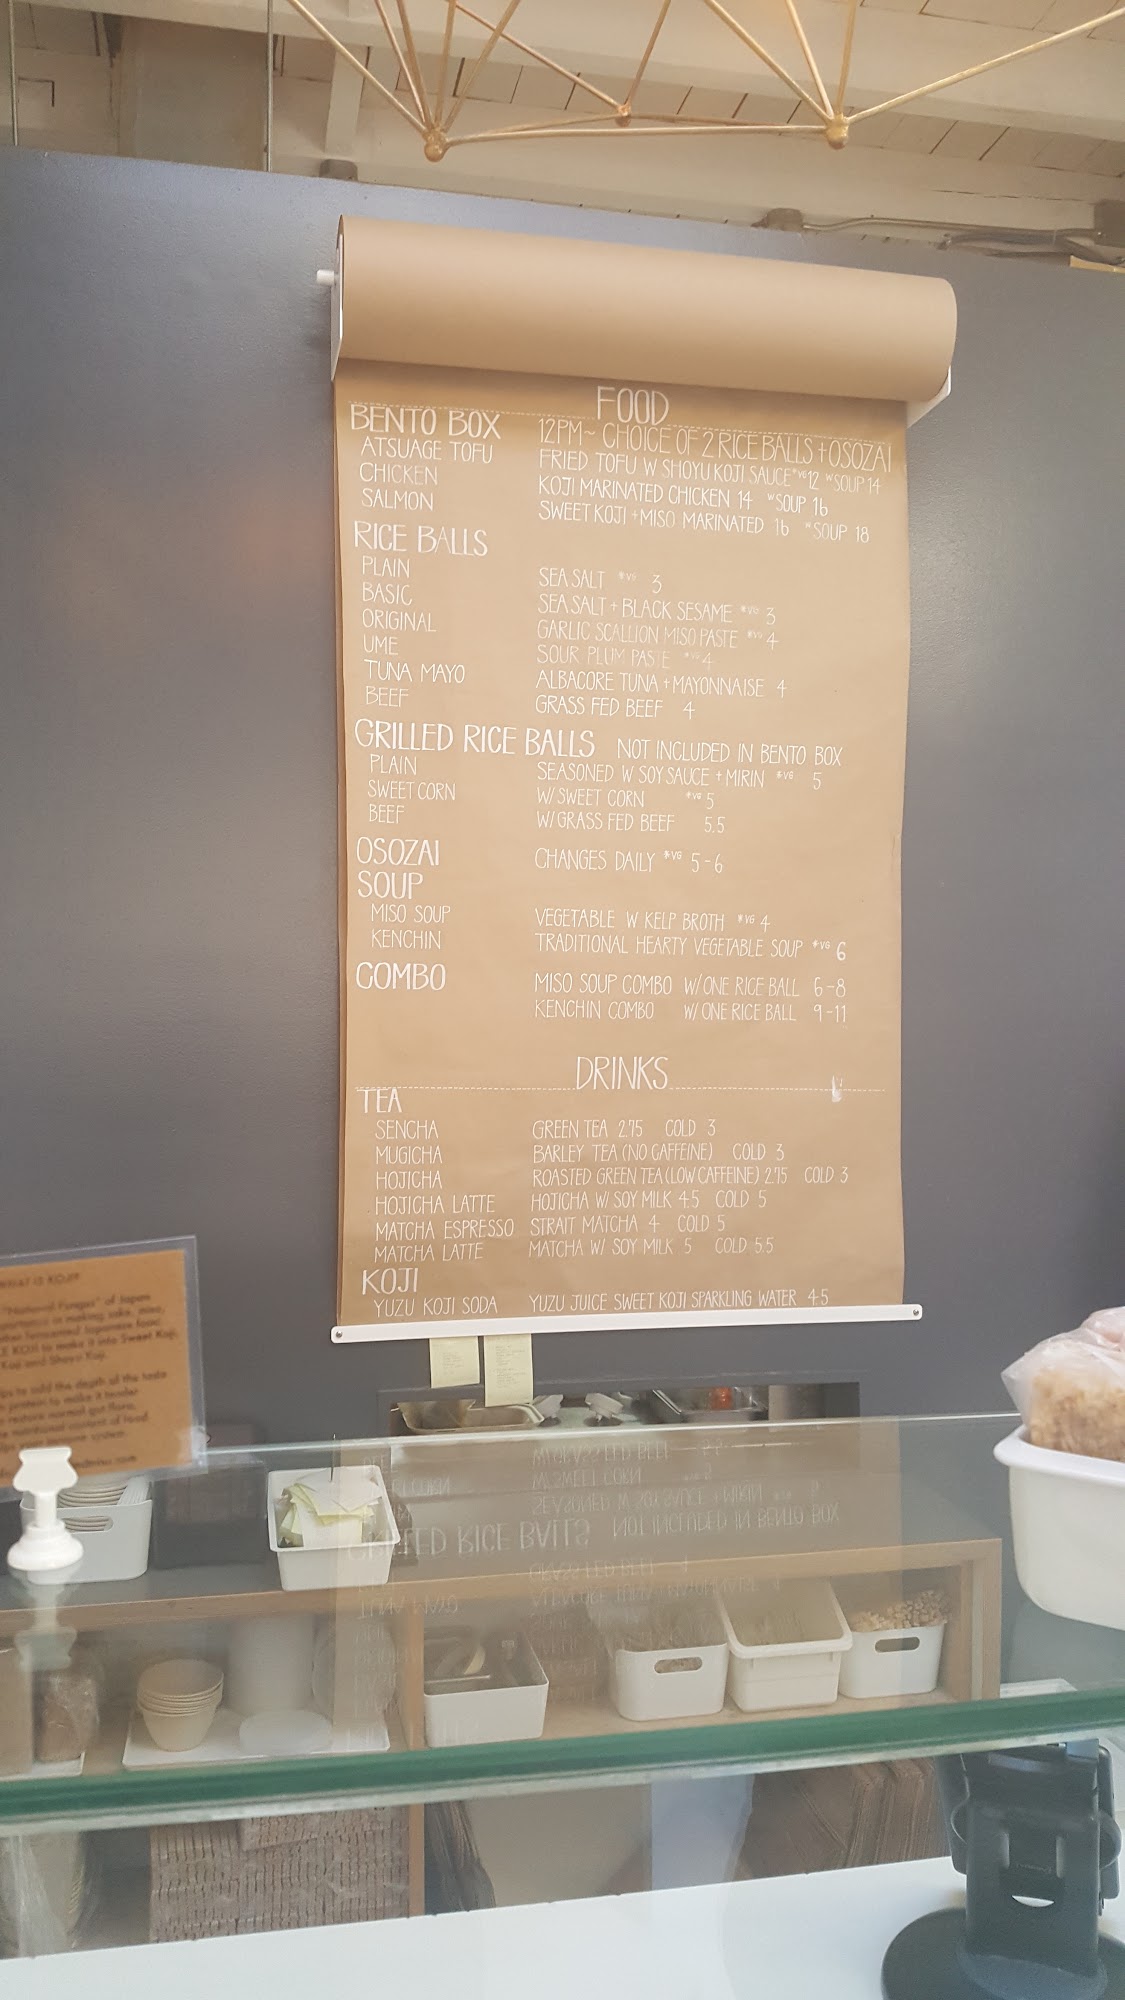 FOOD
BENTO BOX 12PM~ CHOICE OF 2 RICE BALLS + OSOZAI
ATSUAGE TOFU FRIED TOFU W SHOYU KOJI SAUCE *VG 12 W SOUP 14
CHICKEN KOJI MARINATED CHICKEN 14 W SOUP 16
SALMON SWEET KOJI + MISO MARINATED 16 W SOUP 18
RICE BALLS
PLAIN SEA SALT *VG 3
BASIC SEA SALT + BLACK SESAME *VG 3
ORIGINAL GARLIC SCALLION MISO PASTE *VG 4
UME SOUR PLUM PASTE *VG 4
TUNA MAYO ALBACORE TUNA + MAYONNAISE 4
BEEF GRASS FED BEEF 4
GRILLED RICE BALLS NOT INCLUDED IN BENTO BOX
PLAIN SEASONED W SOY SAUCE + MIRIN *VG 5
SWEET CORN W/ SWEET CORN *VG 5
BEEF W/ GRASS FED BEEF 5.5
OSOZAI CHANGES DAILY *VG 5-6
SOUP
MISO SOUP VEGETABLE W KELP BROTH *VG 4
KENCHIN TRADITIONAL HEARTY VEGETABLE SOUP *VG 6
COMBO MISO SOUP COMBO W/ ONE RICE BALL 6-8
KENCHIN COMBO W/ ONE RICE BALL 9-11
DRINKS
TEA
SENCHA GREEN TEA 2.75 COLD 3
MUGICHA BARLEY TEA (NO CAFFEINE) COLD 3
HOJICHA ROASTED GREEN TEA (LOW CAFFEINE) 2.75 COLD 3
HOJICHA LATTE HOJICHA W/ SOY MILK 4.5 COLD 5
MATCHA ESPRESSO STRAIT MATCHA 4 COLD 5
MATCHA LATTE MATCHA W/ SOY MILK 5 COLD 5.5
KOJI
YUZU KOJI SODA YUZU JUICE SWEET KOJI SPARKLING WATER 4.5
WHAT IS KOJI?
"National Fungus" of Japan
in making sake, miso,
fermented Japanese food
KOJI to make it into Sweet Koji,
Koji and Shoyu Koji.
to add the depth of the taste
protein to make it tender
restore normal gut flora,
nutritional content of food
immune system